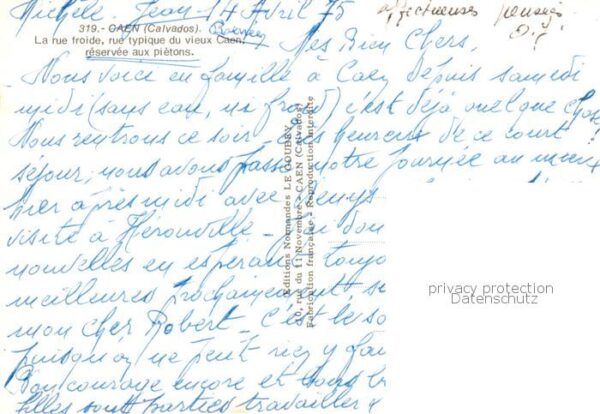 Michèle, Jean 14 Avril 75
affectueuses pensées
319. - CAEN (Calvados).
La rue froide, rue typique du vieux Caen,
réservée aux piétons.
Mes Bien Chers,
Nous voici en famille à Caen depuis samedi
midi (sans eau, ni froid) c'est déjà quelque chose
Nous rentrons ce soir heureux de ce court
séjour, nous avons passé notre journée au mieux
hier après midi avec
visite à Hérouville
nouvelles en espérant toujo
meilleures prochainement, su
mon cher Robert - C'est le so
puisqu'on ne peut rien y fai
Bon courage encore et tous
filles sont parties travailler
Editions Normandes LE GOUBEY
10, rue du 11 Novembre - CAEN (Calvados)
Fabrication française - Reproduction interdite
privacy protection
Datenschutz